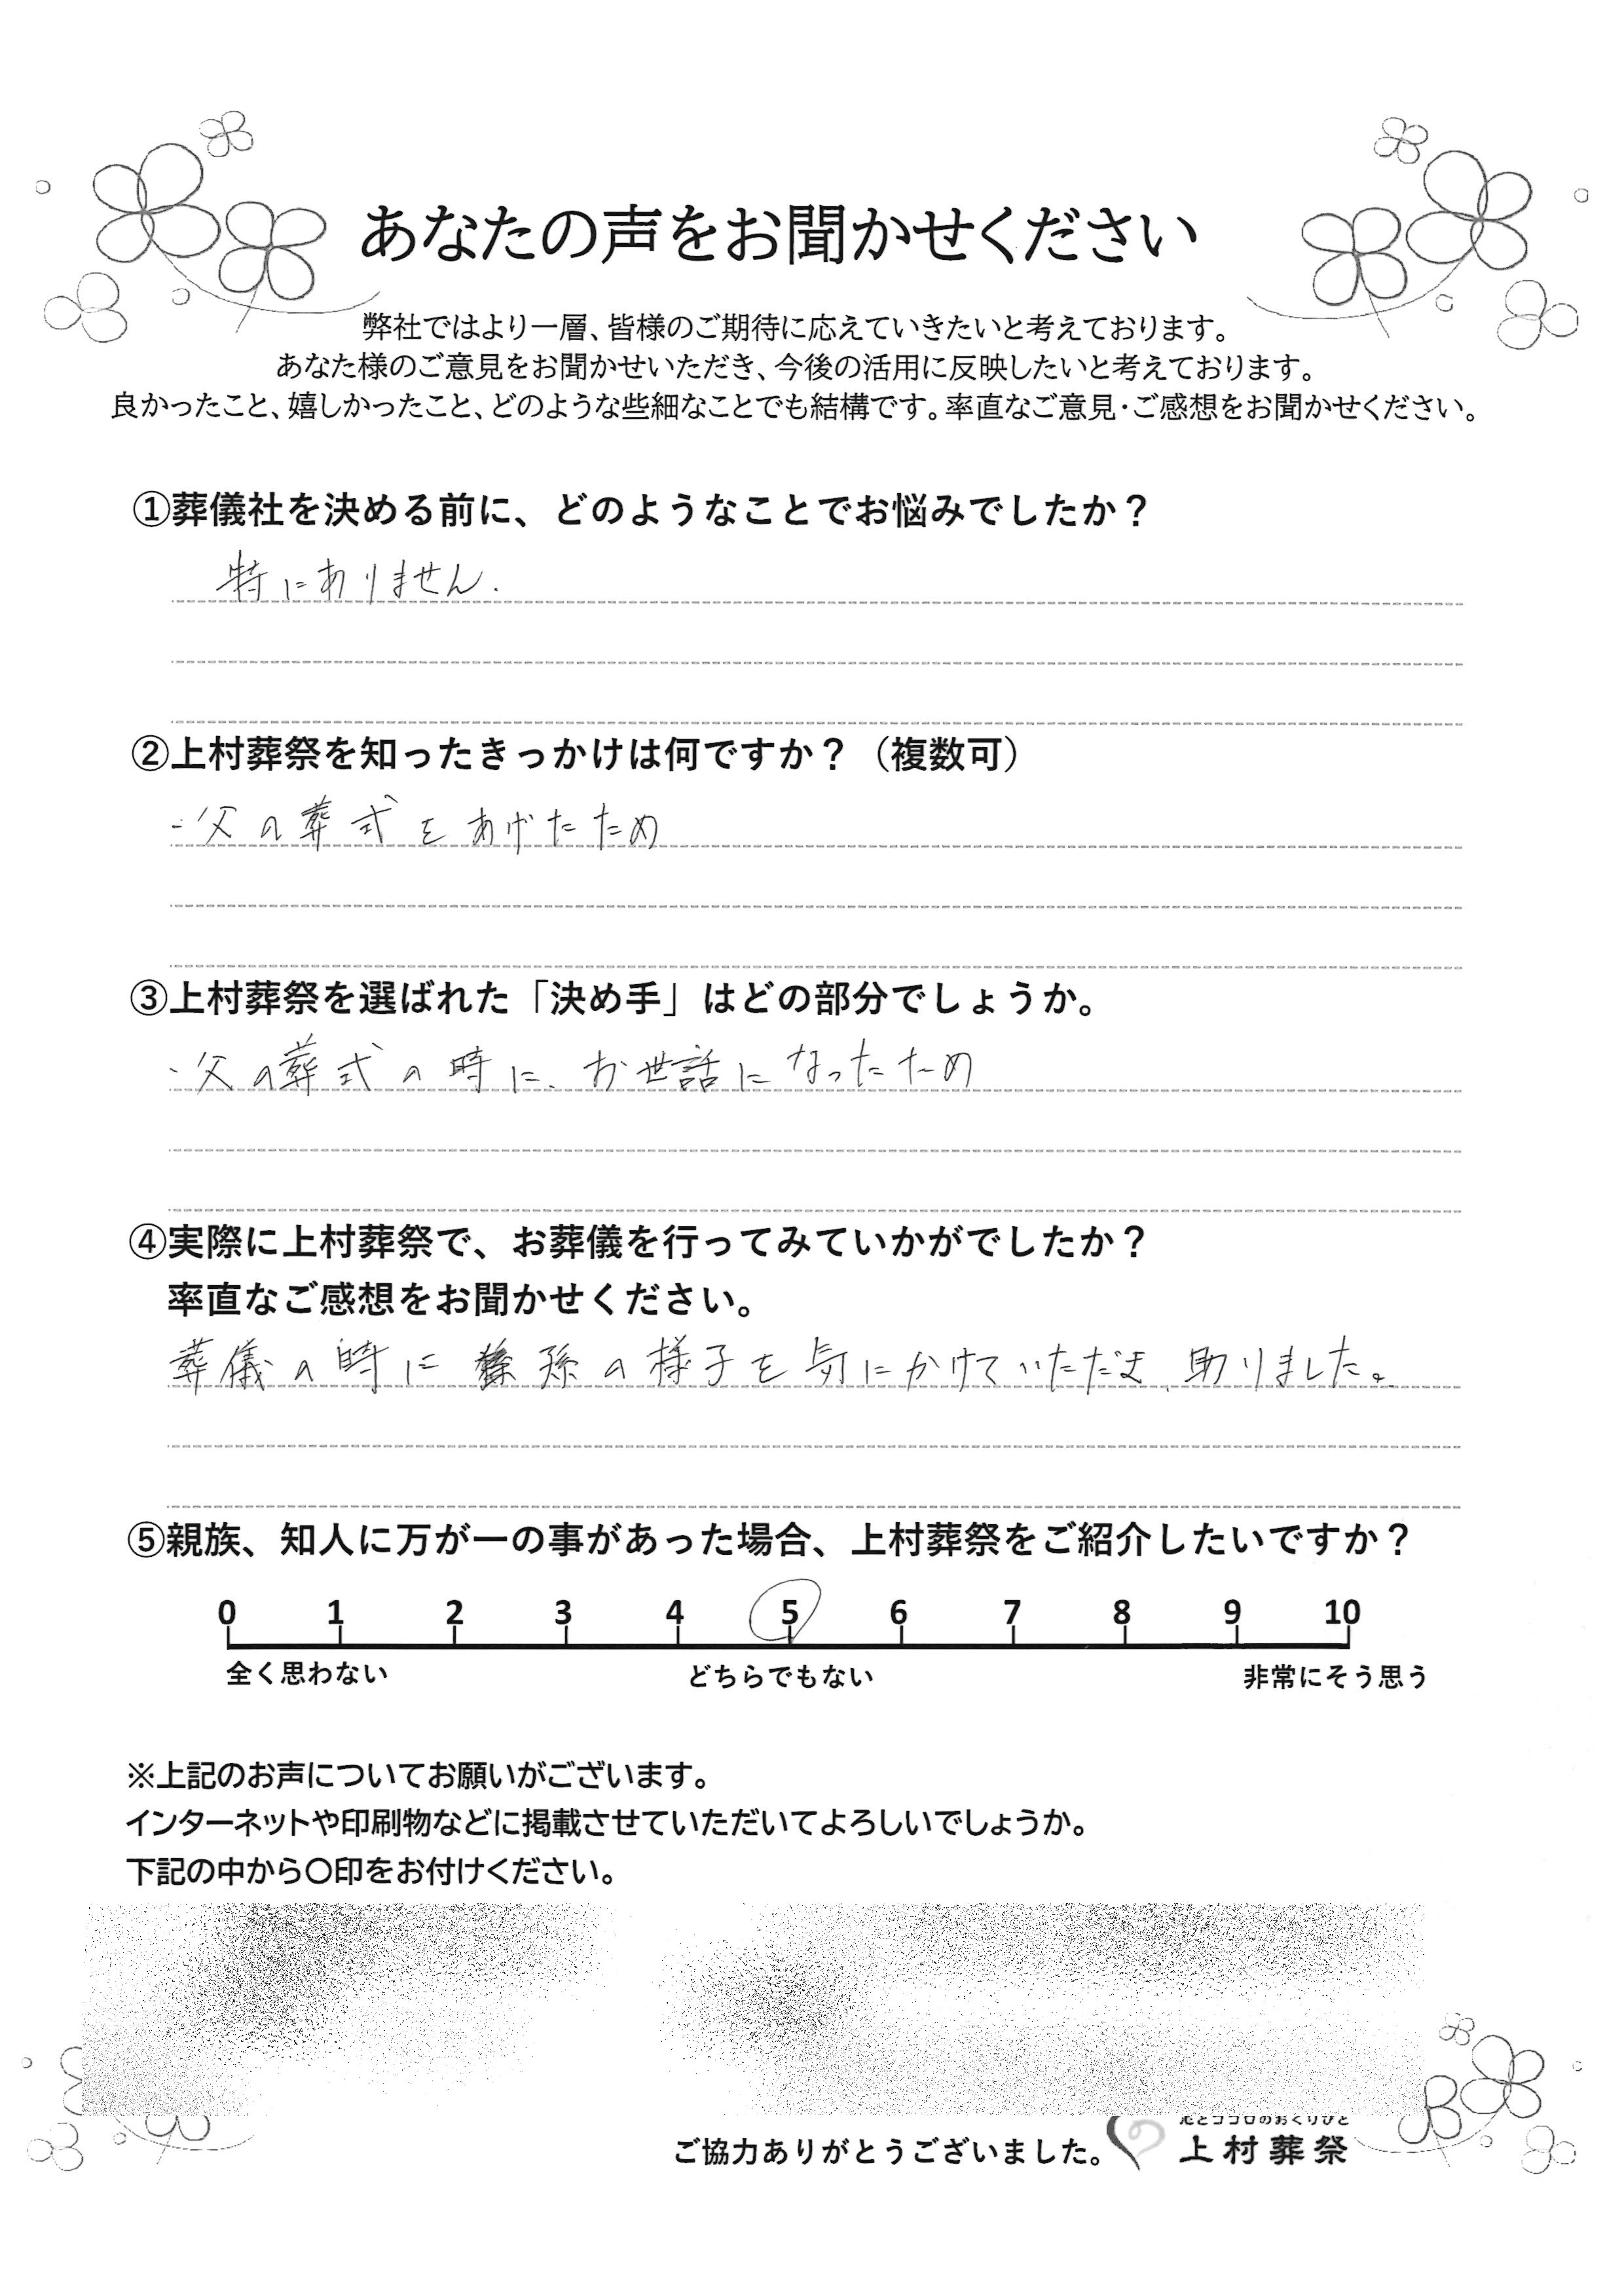 あなたの声をお聞かせください
弊社ではより一層、皆様のご期待に応えていきたいと考えております。
あなた様のご意見をお聞かせいただき、今後の活用に反映したいと考えております。
良かったこと、嬉しかったこと、どのような些細なことでも結構です。率直なご意見・ご感想をお聞かせください。
①葬儀社を決める前に、どのようなことでお悩みでしたか？
特にありません.
②上村葬祭を知ったきっかけは何ですか？（複数可）
・父の葬式をあげたため
③上村葬祭を選ばれた「決め手」はどの部分でしょうか。
・父の葬式の時に、お世話になったため
④実際に上村葬祭で、お葬儀を行ってみていかがでしたか？
率直なご感想をお聞かせください。
葬儀の時に 孫の様子を気にかけていただき、助りました。
⑤親族、知人に万が一の事があった場合、上村葬祭をご紹介したいですか？
0 1 2 3 4 5 6 7 8 9 10
全く思わない どちらでもない 非常にそう思う
※上記のお声についてお願いがございます。
インターネットや印刷物などに掲載させていただいてよろしいでしょうか。
下記の中から〇印をお付けください。
とココロのおくりびと
ご協力ありがとうございました。 上村葬祭